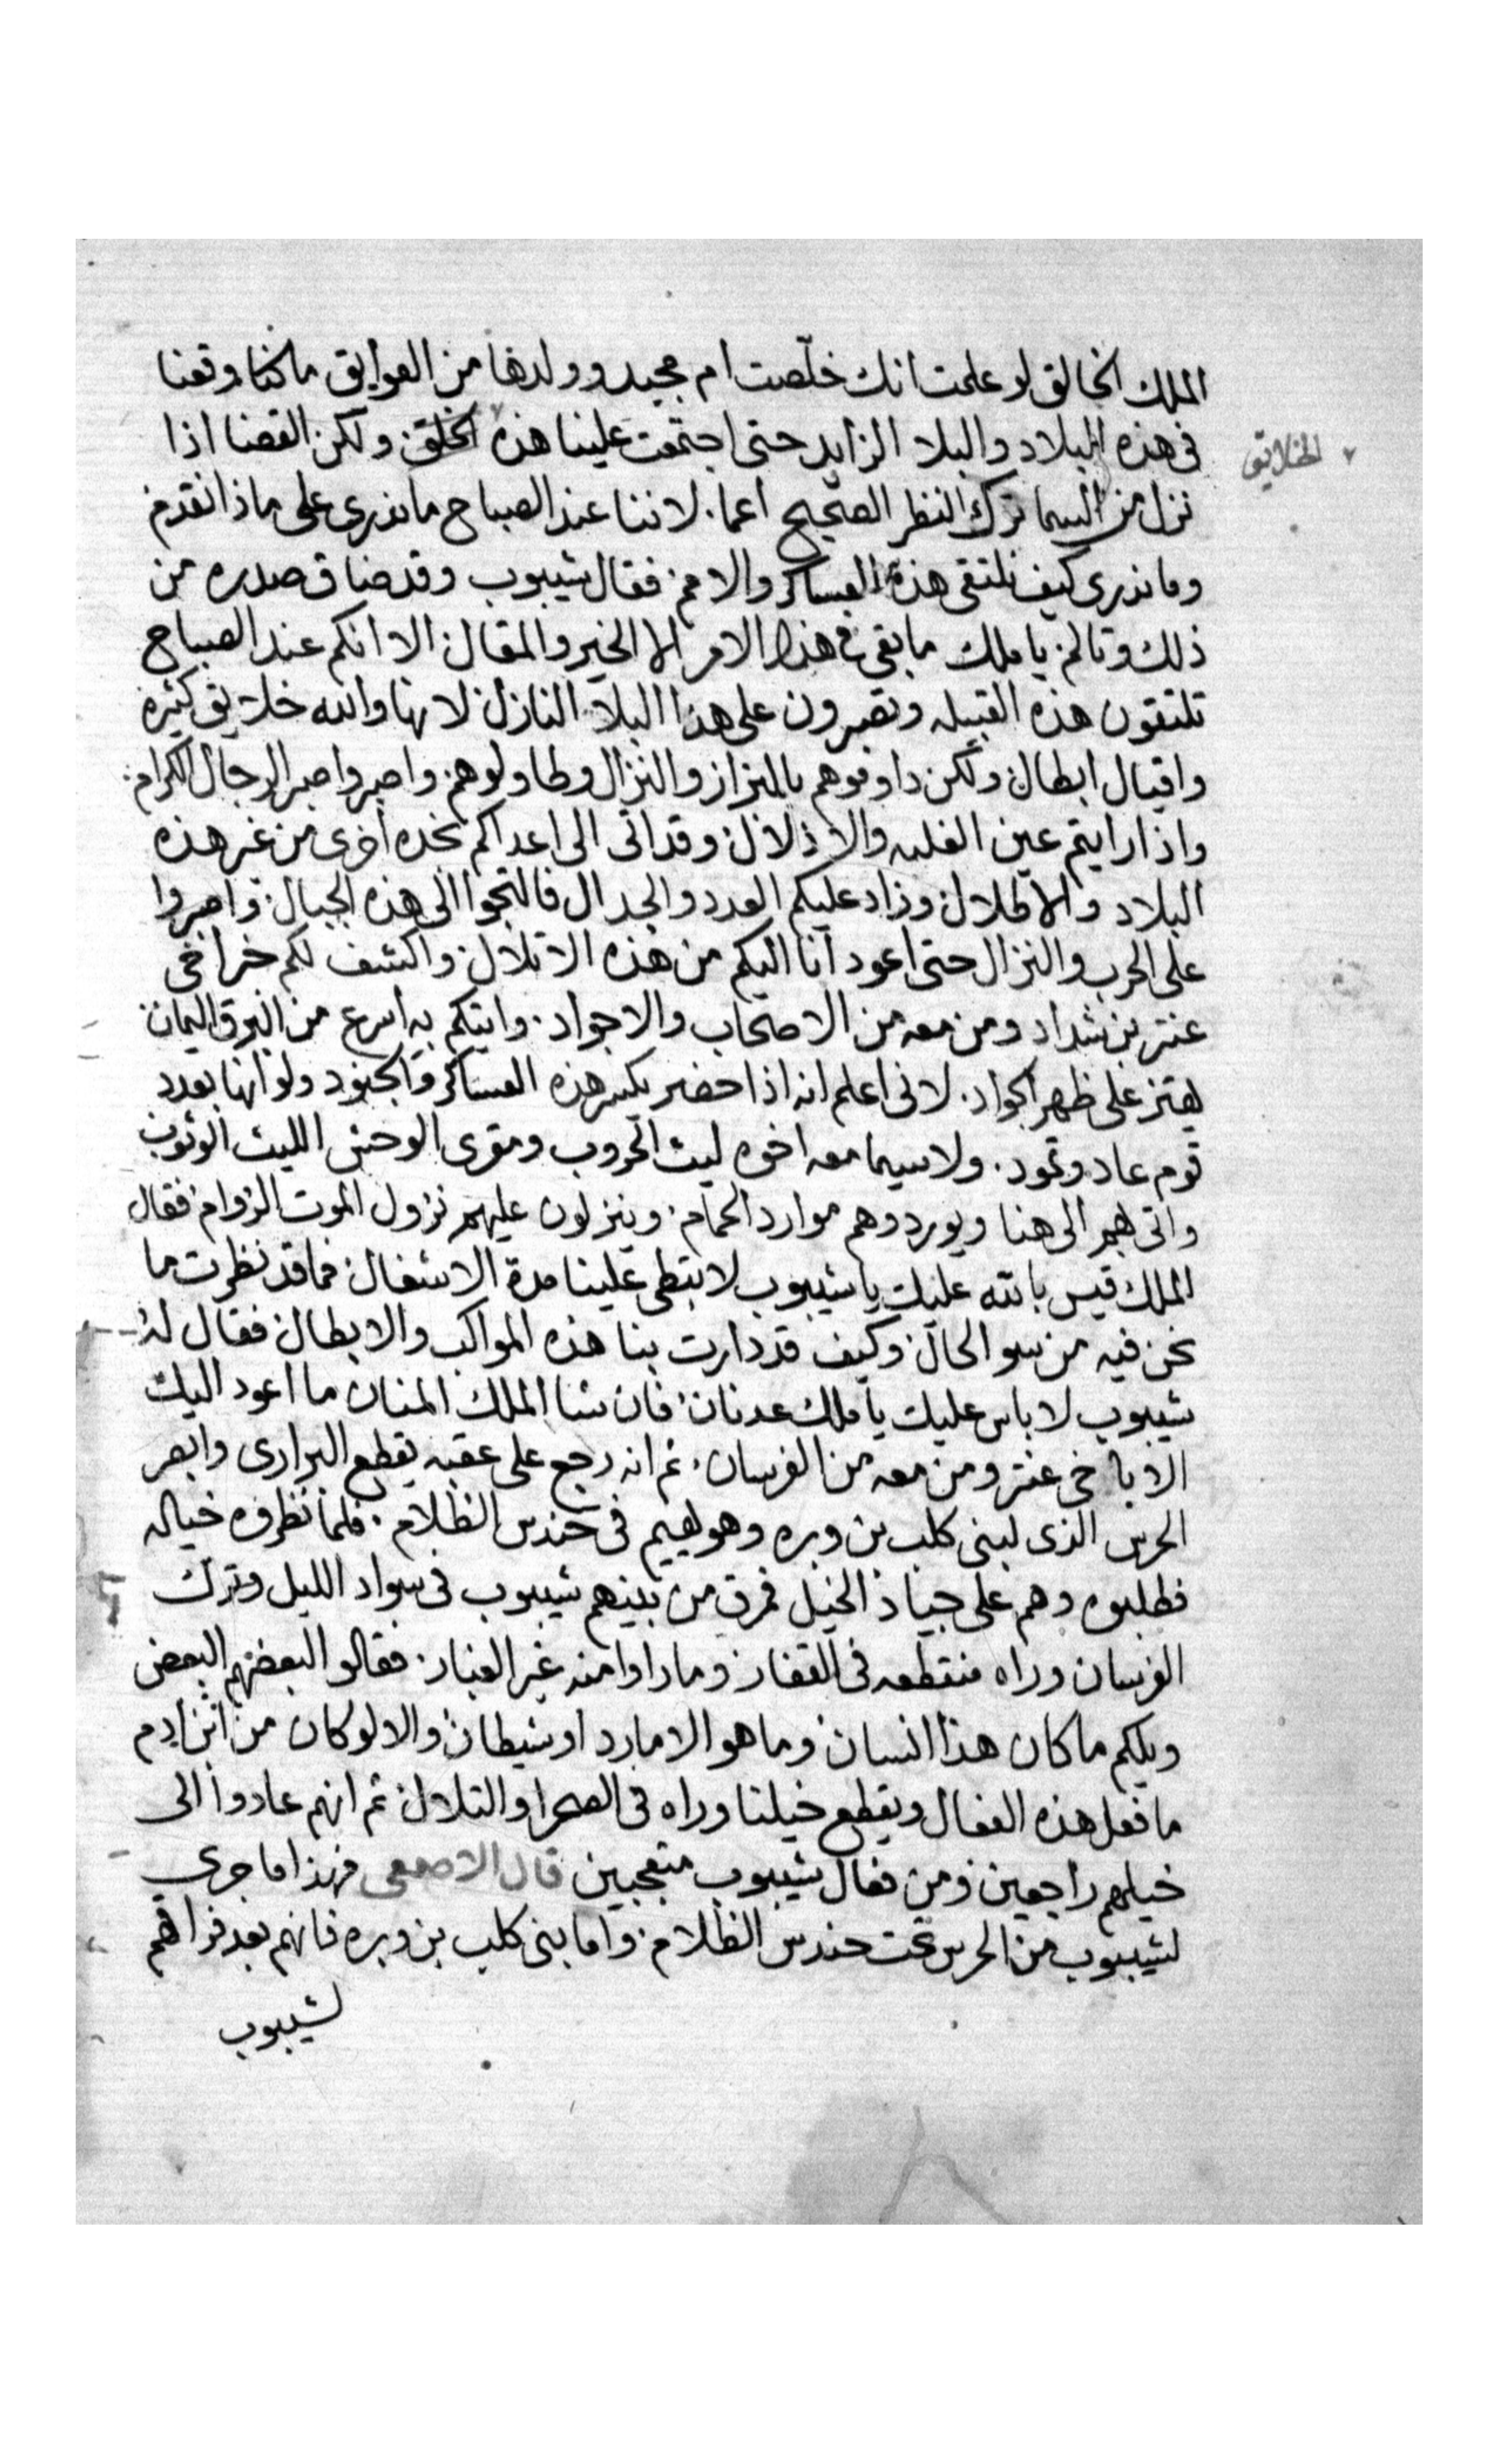 الملك الخالق لو علمت انك خلّصت ام مجيد وولدها من العوايق ما كنا وقعنا
فى هذه البلاد والبلا الزايد حتى اجتمعت علينا هذه الخلق ولكن القضا اذا
الخلايق
نزل من السما ترك النظر الصحيح اعما. لاننا عند الصباح ما ندرى على ماذا نقدم
وما ندرى كيف نلتقى هذه العساكر والامم فقال شيبوب وقد ضاق صدره من
ذلك وتالم يا ملك ما بقى فى هذا الامر الا الخير والمقال الا انكم عند الصباح
تلتقون هذه القبيله وتصبرون على هذا البلا النازل لانها والله خلايق كثيرة
واقيال ابطال ولكن دافعوهم بالبراز والنزال وطاولوهم واصبروا صبر الرجال الكرام
واذا رايتم عين الغلبه والاذلال وقد اتى الى اعداكم نجده اخرى من غير هذه
البلاد والاطلال وزاد عليكم العدد والجدال فالتجوا الى هذه الجبال واصبروا
على الحرب والنزال حتى اعود انا اليكم من هذه الاتلال واكشف لكم خبر اخى
عنتر بن شداد ومن معه من الاصحاب والاجواد. واتيكم به اسرع من البرق اليمان
يهتز على ظهر الجواد. لانى اعلم انه اذا حضر يكسر هذه العساكر والجنود ولو انها بعدد
قوم عاد وثمود. ولا سيما معه اخوه ليث الحروب ومقرى الوحش الليث الوثوب
واتى بهم الى هنا ويوردوهم موارد الحمام وينزلون عليهم نزول الموت الزوام فقال
الملك قيس بالله عليك يا شيبوب لا تبطى علينا مدة الاشغال فما قد نظرت ما
نحن فيه من سو الحال وكيف قد دارت بنا هذه المواكب والابطال فقال له
شيبوب لا باس عليك يا ملك عدنان فان شا الملك المنان ما اعود اليك
الا باخى عنتر ومن معه من الفرسان. ثم انه رجع على عقبه يقطع البرارى وابصر
الحرس الذى لبنى كلب بن وبره وهو يهيم فى حندس الظلام. فلما نظروه خياله
فطلبوه وهم على جياد الخيل فمرق من بينهم شيبوب فى سواد الليل وترك
الفرسان وراه منقطعه فى القفار وما راوا منه غير الغبار. فقالوا لبعضهم البعض
ويلكم ما كان هذا انسان وما هو الا مارد او شيطان والا لو كان من ابن ادم
ما فعل هذه الفعال ويقطع خيلنا وراه فى الصحرا والتلال ثم انهم عادوا الى
خيلهم راجعين ومن فعال شيبوب متعجبين قال الاصمعى فهذا ما جرى
لشيبوب من الحرس تحت حندس الظلام. واما بنى كلب بن وبره فانهم بعد فراقهم
لشيبوب